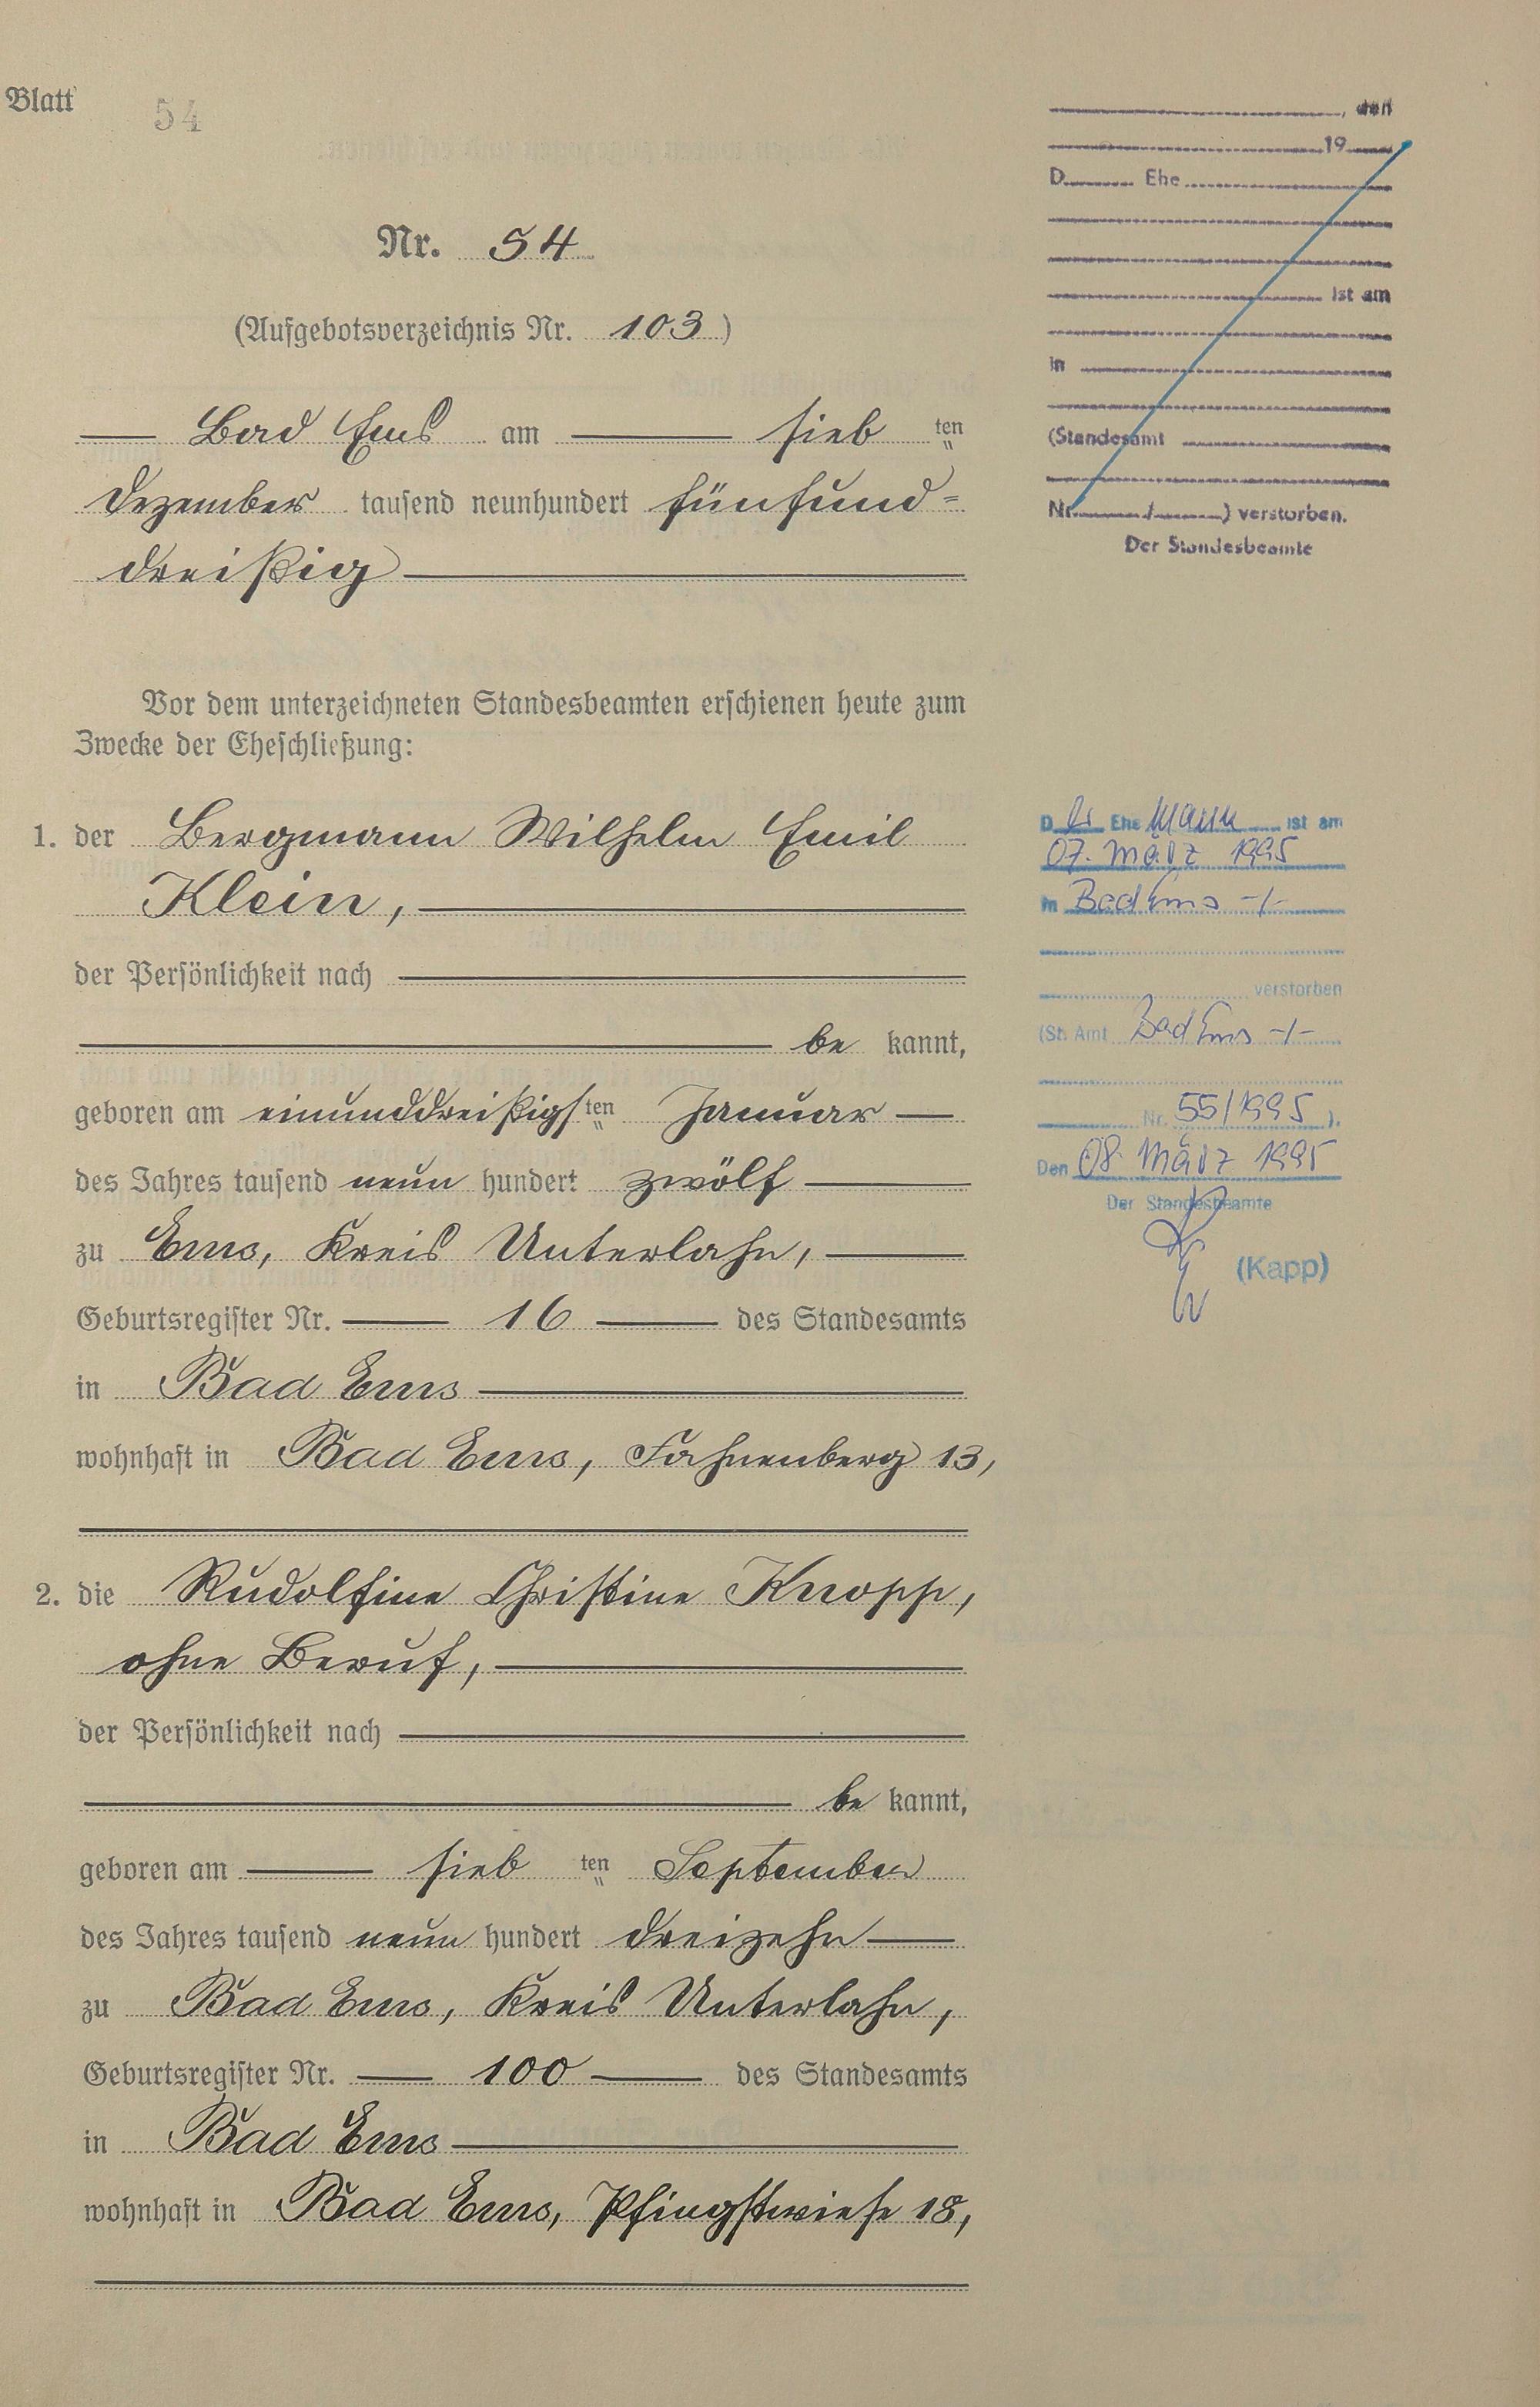 Blatt 54
Nr. 54
(Aufgebotsverzeichnis Nr. 103)
Bad Ems am sieb ten
Dezember tausend neunhundert fünfund-
dreißig
Vor dem unterzeichneten Standesbeamten erschienen heute zum
Zwecke der Eheschließung:
1. der Bergmann Wilhelm Emil
Klein,
der Persönlichkeit nach
be kannt,
geboren am einunddreißigsten Januar
des Jahres tausend neun hundert zwölf
zu Ems, Kreis Unterlahn,
Geburtsregister Nr. 16 des Standesamts
in Bad Ems
wohnhaft in Bad Ems, Fahnenberg 13,
2. die Rudolfine Christine Knopp,
ohne Beruf,
der Persönlichkeit nach
be kannt,
geboren am sieb ten September
des Jahres tausend neun hundert dreizehn
zu Bad Ems, Kreis Unterlahn,
Geburtsregister Nr. 100 des Standesamts
in Bad Ems
wohnhaft in Bad Ems, Pfingstwiese 18,
, den
19
D Ehe
ist am
in
(Standesamt
Nr. / ) verstorben.
Der Standesbeamte
D er Ehe mann ist am
07. März 1995
in Bad Ems -/-
verstorben
(St. Amt Bad Ems -/-
Nr. 55/1995 ).
Den 08. März 1995
Der Standesbeamte
(Kapp)